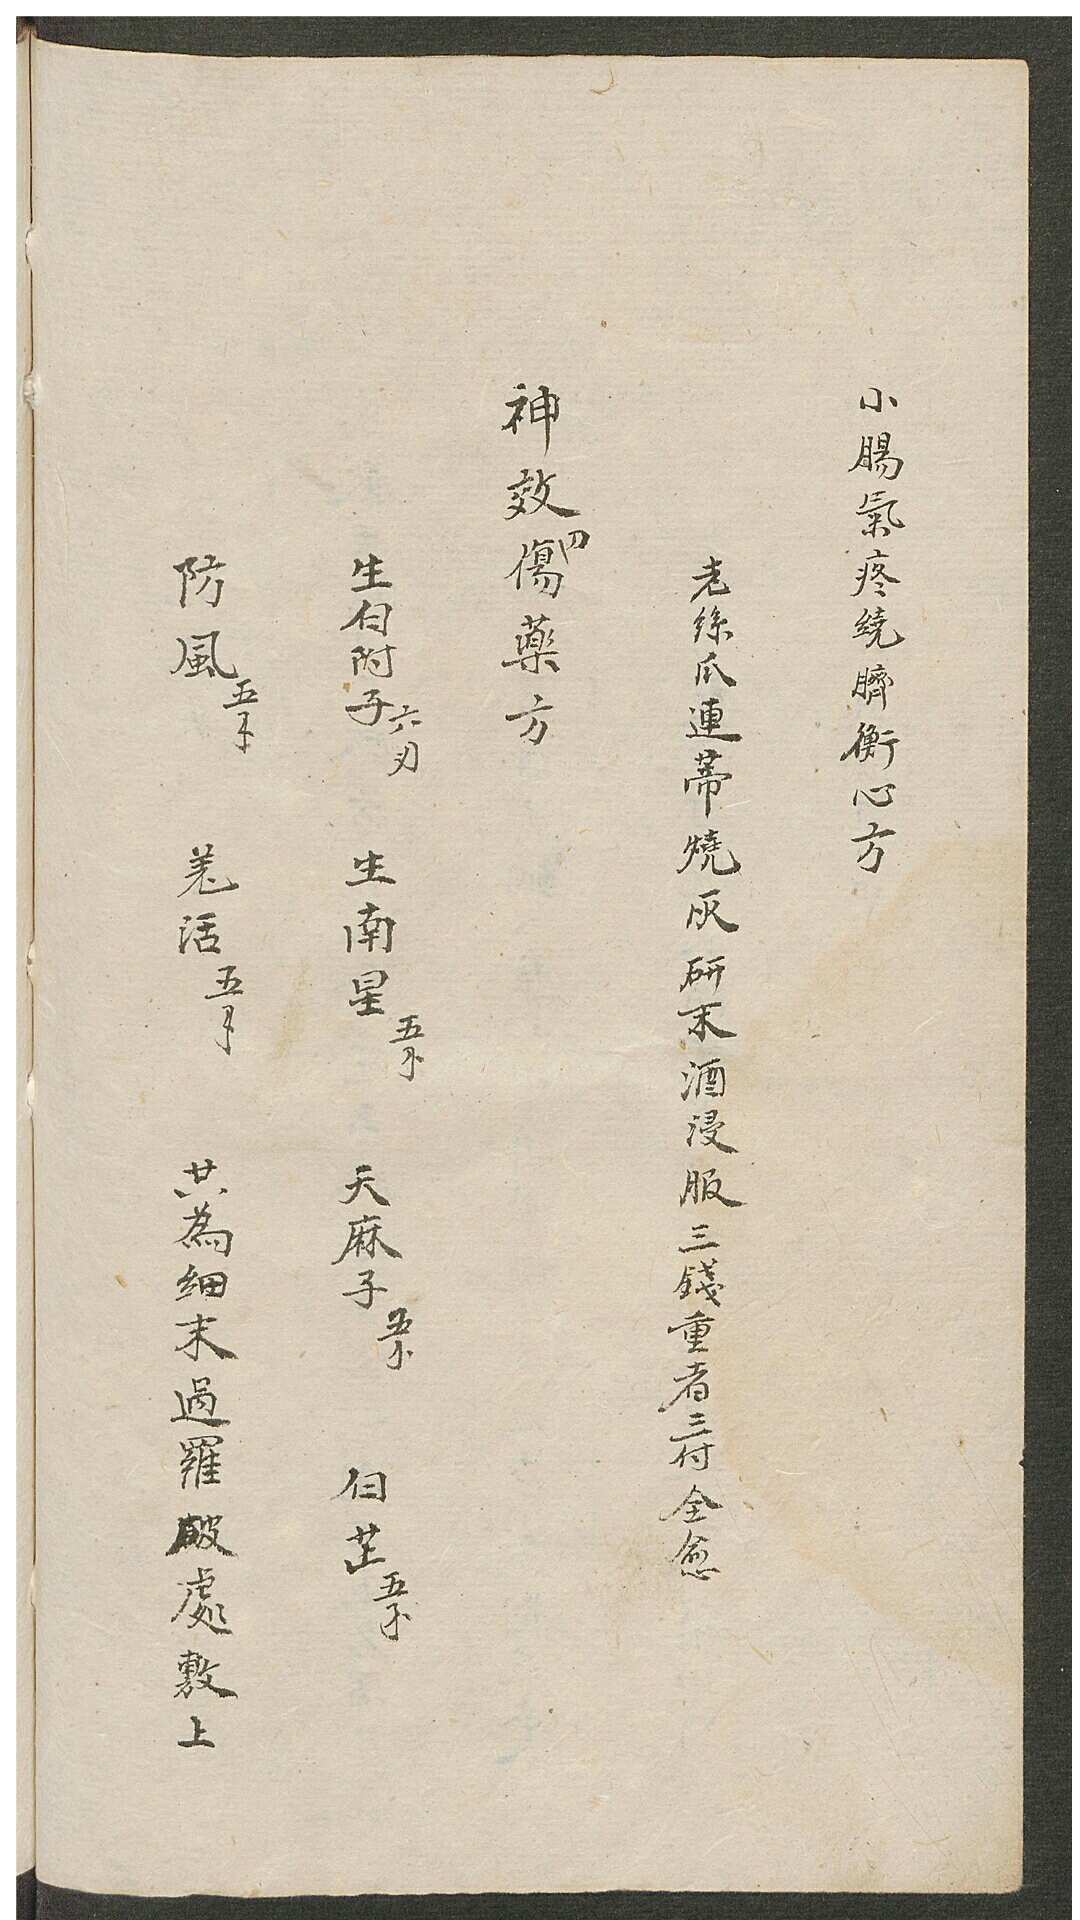 小腸氣疼繞臍衝心方
老絲瓜連蒂燒灰研末酒浸服三錢重者三付全愈
神效刀傷藥方
生白附子六刄 生南星五个 天麻子五个 白芷五个
防風五个 羗活五个 共為細末過羅破處敷上